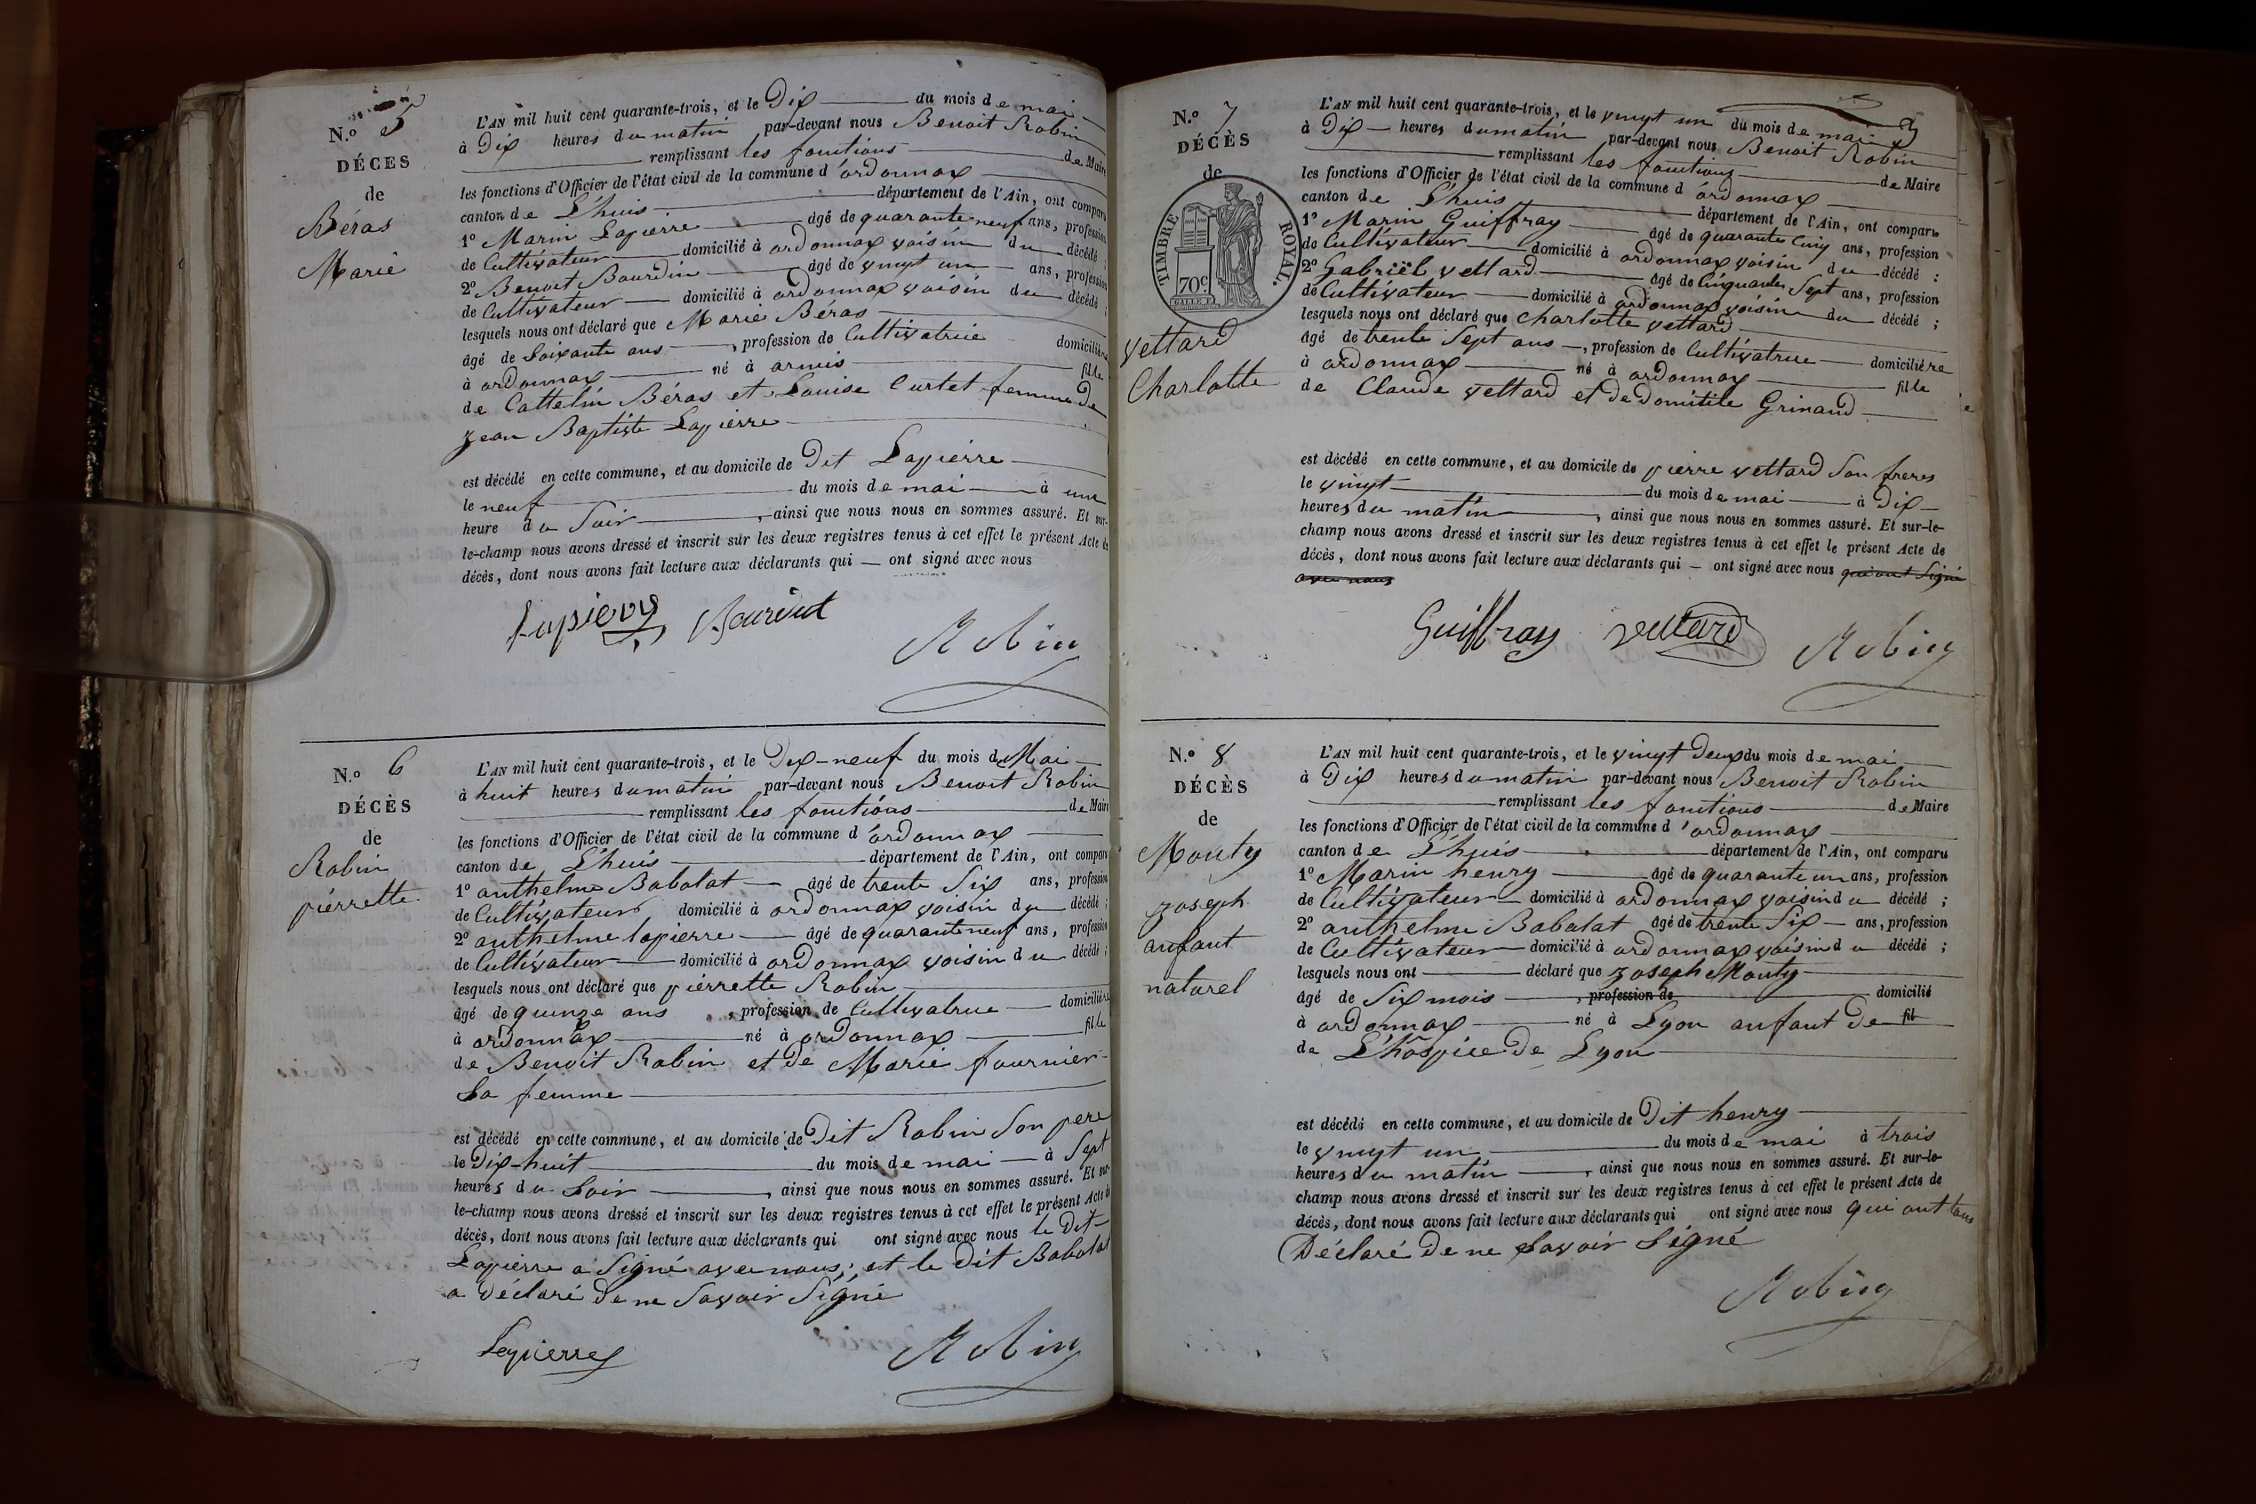 N.º 5
DÉCES
de
Béras
Marie
L'AN mil huit cent quarante-trois, et le Dix du mois de mai
à Dix heures du matin par-devant nous Benoit Robin
remplissant les fonctions de Maire
les fonctions d'Officier de l'état civil de la commune d'ordonnax
canton de L'huis département de l'Ain, ont comparu
1º Marin Lapierre âgé de quarante neuf ans, profession
de Cultivateur domicilié à ordonnax voisin du décédé ;
2º Benoit Bourdin âgé de vingt un ans, profession
de Cultivateur domicilié à ordonnax voisin du décédé ;
lesquels nous ont déclaré que Marie Béras
âgé de Soixante ans , profession de Cultivatrice domiciliére
à ordonnax né à armis fille
de Cattelin Béras et Louise Curtet femme de
Jean Baptiste Lapierre
est décédé en cette commune, et au domicile de Dit Lapierre
le neuf du mois de mai à une
heure du Soir , ainsi que nous nous en sommes assuré. Et sur-
le-champ nous avons dressé et inscrit sur les deux registres tenus à cet effet le présent Acte de
décès, dont nous avons fait lecture aux déclarants qui — ont signé avec nous
Lapierre Bourdin
Robin
N.º 6
DÉCÈS
de
Robin
pierrette
L'AN mil huit cent quarante-trois, et le Dix-neuf du mois de Mai
à huit heures du matin par-devant nous Benoit Robin
remplissant les fonctions de Maire
les fonctions d'Officier de l'état civil de la commune d'ordonnax
canton de L'huis département de l'Ain, ont comparu
1º anthelme Babolat âgé de trente Six ans, profession
de Cultivateur domicilié à ordonnax voisin du décédé ;
2º anthelme lapierre âgé de quarante neuf ans, profession
de Cultivateur domicilié à ordonnax voisin du décédé ;
lesquels nous ont déclaré que pierrette Robin
âgé de quinze ans , profession de Cultivatrice domiciliére
à ordonnax né à ordonnax fille
de Benoit Robin et de Marie fournier
Sa femme
est décédé en cette commune, et au domicile de Dit Robin Son pere
le Dix-huit du mois de mai à Sept
heures du Soir , ainsi que nous nous en sommes assuré. Et sur-
le-champ nous avons dressé et inscrit sur les deux registres tenus à cet effet le présent Acte de
décès, dont nous avons fait lecture aux déclarants qui ont signé avec nous le Dit
Lapierre a Signé avec nous, et le Dit Babolat
a Déclaré de ne Savoir Signé
Lapierre
Robin
N.º 7
DÉCÈS
de
TIMBRE ROYAL.
70c
vettard
Charlotte
L'AN mil huit cent quarante-trois, et le vingt un du mois de mai
à Dix heures du matin par-devant nous Benoit Robin
remplissant les fonctions de Maire
les fonctions d'Officier de l'état civil de la commune d'ordonnax
canton de L'huis département de l'Ain, ont comparu
1º Marin Guiffray âgé de quarante Cinq ans, profession
de Cultivateur domicilié à ordonnax voisin du décédé :
2º Gabriël vettard âgé de Cinquante Sept ans, profession
de Cultivateur domicilié à ordonnax voisin du décédé ;
lesquels nous ont déclaré que charlotte vettard
âgé de trente Sept ans , profession de Cultivatrice domiciliére
à ordonnax né à ordonnax fille
de Claude vettard et de domitile Grinand
est décédé en cette commune, et au domicile de pierre vettard Son freres
le vingt du mois de mai à Dix
heures du matin , ainsi que nous nous en sommes assuré. Et sur-le-
champ nous avons dressé et inscrit sur les deux registres tenus à cet effet le présent Acte de
décès, dont nous avons fait lecture aux déclarants qui — ont signé avec nous qui ont Signé
avec nous
Guiffray vettard
Robin
N.º 8
DÉCÈS
de
Monty
Joseph
anfant
naturel
L'AN mil huit cent quarante-trois, et le vingt Deux du mois de mai
à Dix heures du matin par-devant nous Benoit Robin
remplissant les fonctions de Maire
les fonctions d'Officier de l'état civil de la commune d'ordonnax
canton de L'huis département de l'Ain, ont comparu
1º Marin henry âgé de quarante un ans, profession
de Cultivateur domicilié à ordonnax voisin du décédé ;
2º anthelme Babolat âgé de trente Six ans, profession
de Cultivateur domicilié à ordonnax voisin du décédé ;
lesquels nous ont déclaré que Joseph Monty
âgé de Six mois , profession de domicilié
à ordonnax né à Lyon anfant de fil
de L'hospice de Lyon
est décédé en cette commune, et au domicile de Dit henry
le vingt un du mois de mai à trois
heures du matin , ainsi que nous nous en sommes assuré. Et sur-le-
champ nous avons dressé et inscrit sur les deux registres tenus à cet effet le présent Acte de
décès, dont nous avons fait lecture aux déclarants qui ont signé avec nous qui ont tous
Déclaré De ne Savoir Signé
Robin